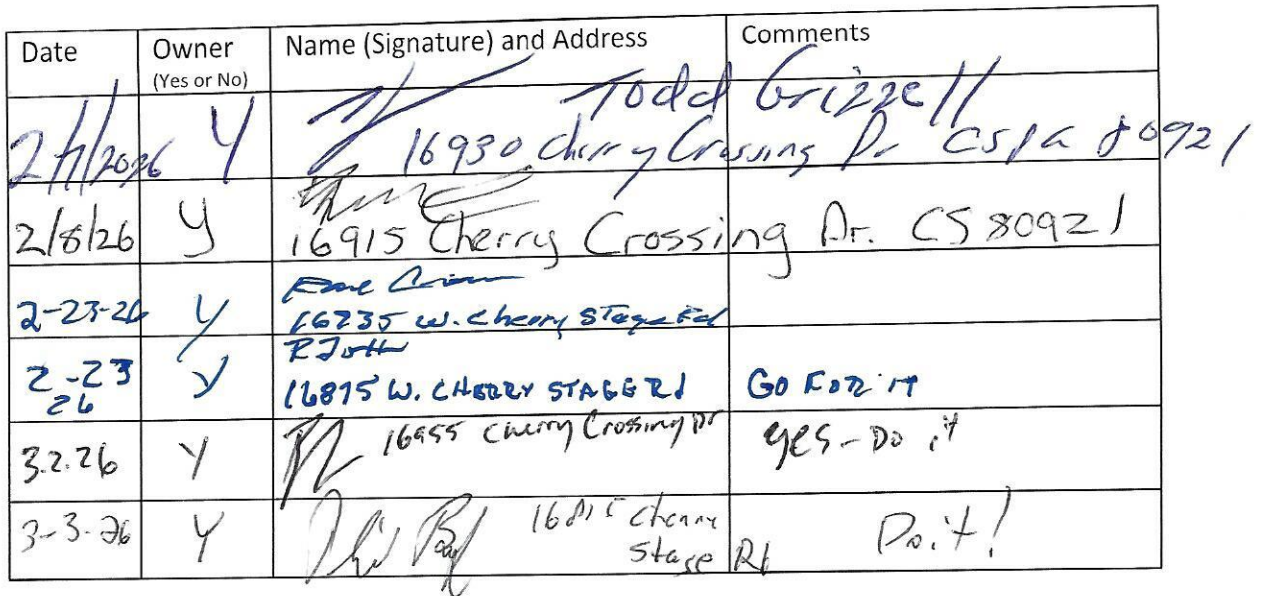 Date Owner Name (Signature) and Address Comments
(Yes or No)
Todd Grizzell
2/7/2026 Y 16930 Cherry Crossing Dr 80921
2/8/26 Y
16915 Cherry Crossing Dr. CS 80921
2-23-26 Y
16735 W. Cherry Stage Rd
2-23 Y
26 16875 W. CHERRY STAGE Rd GO FOR IT
3.2.26 Y 16955 Cherry Crossing Dr yes-Do it
3-3-26 Y Cherry Do it!
Stage Rd